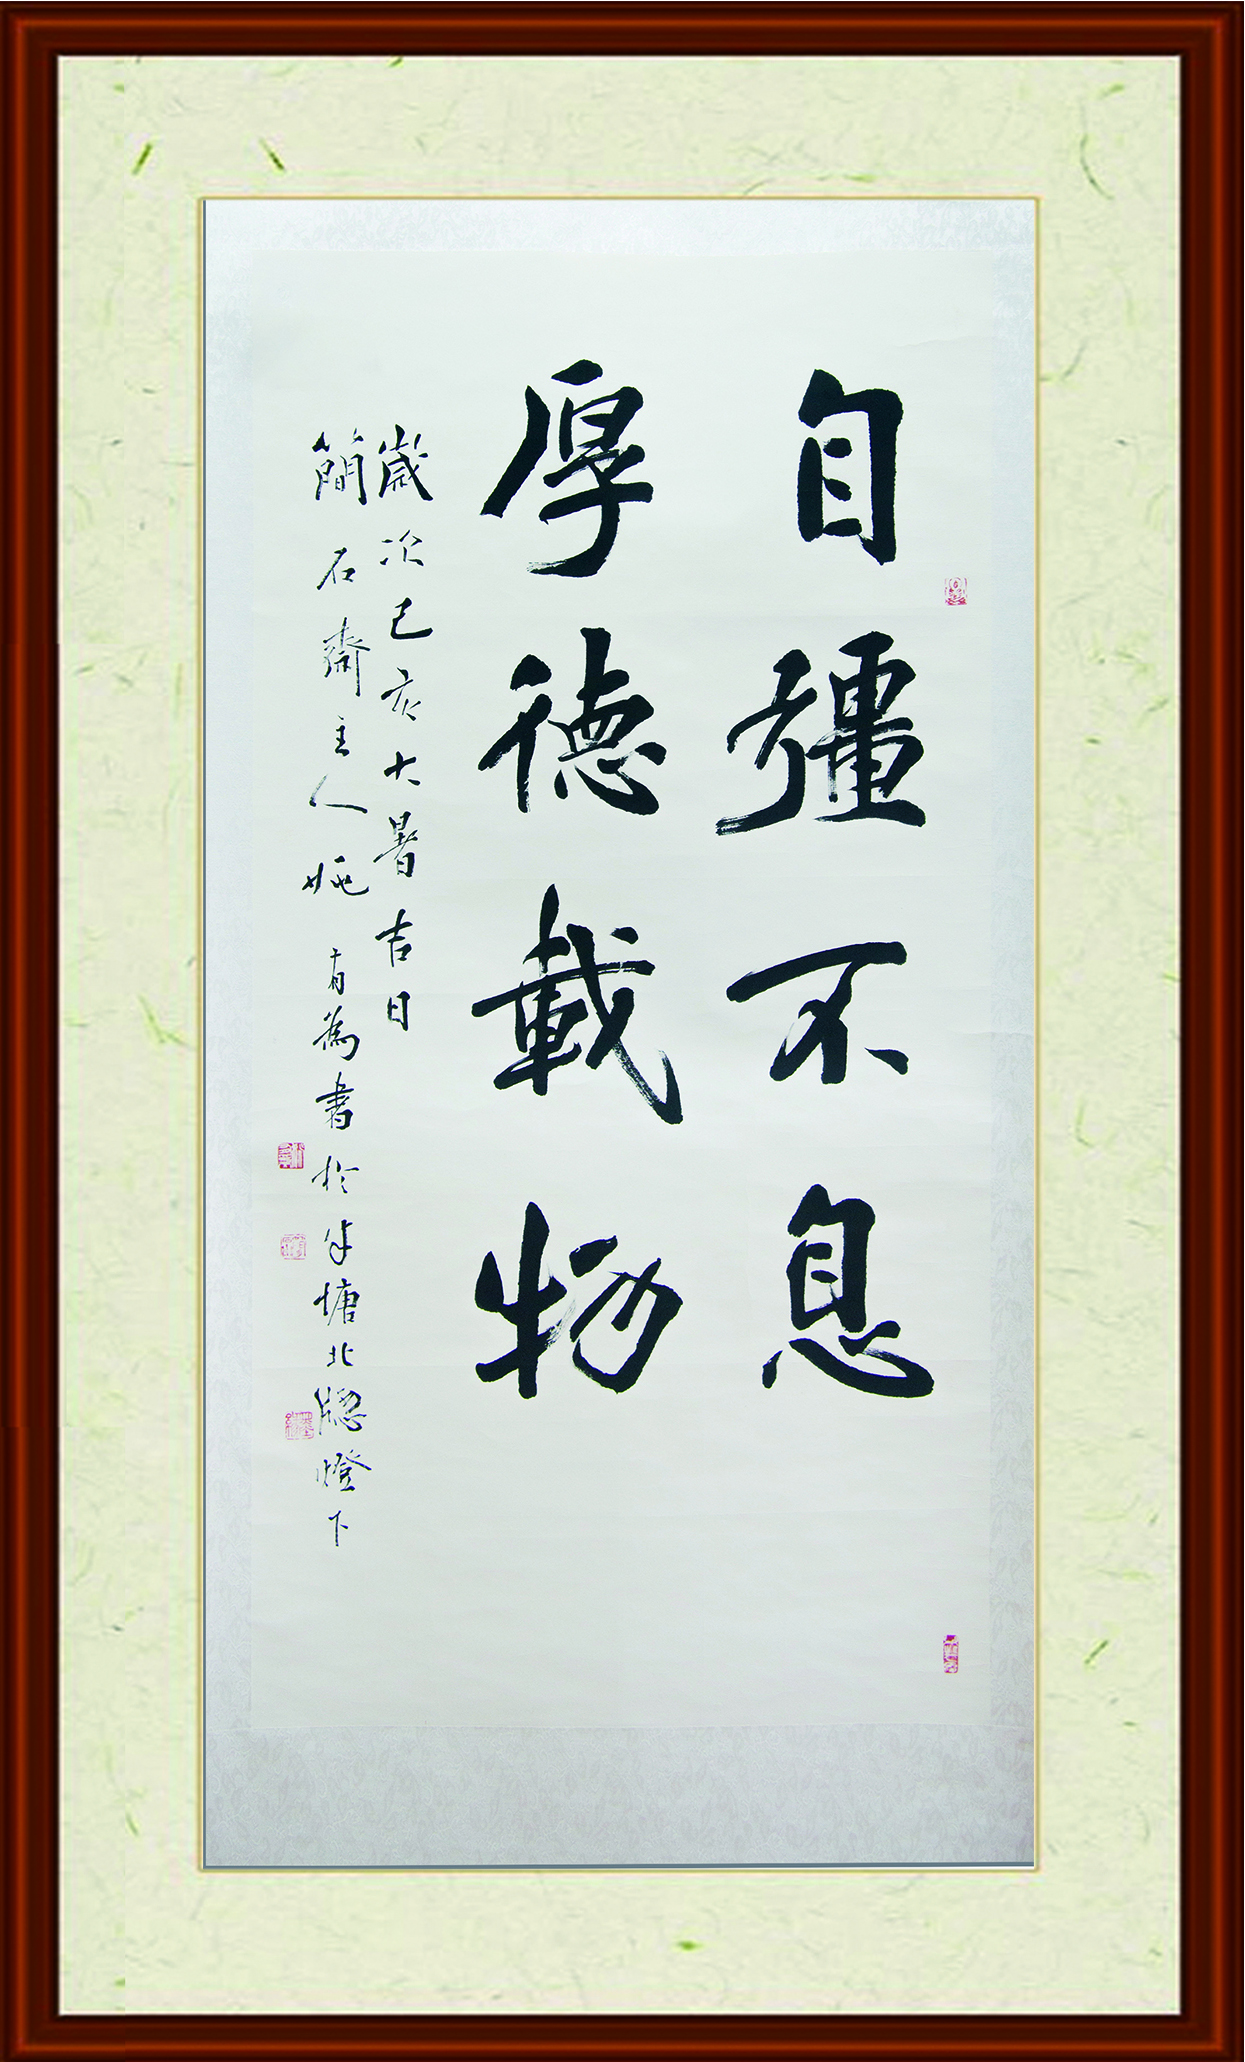 自彊不息
厚德載物
歲次己亥大暑吉日
簡石齋主人姚有為書於半塘北牕燈下